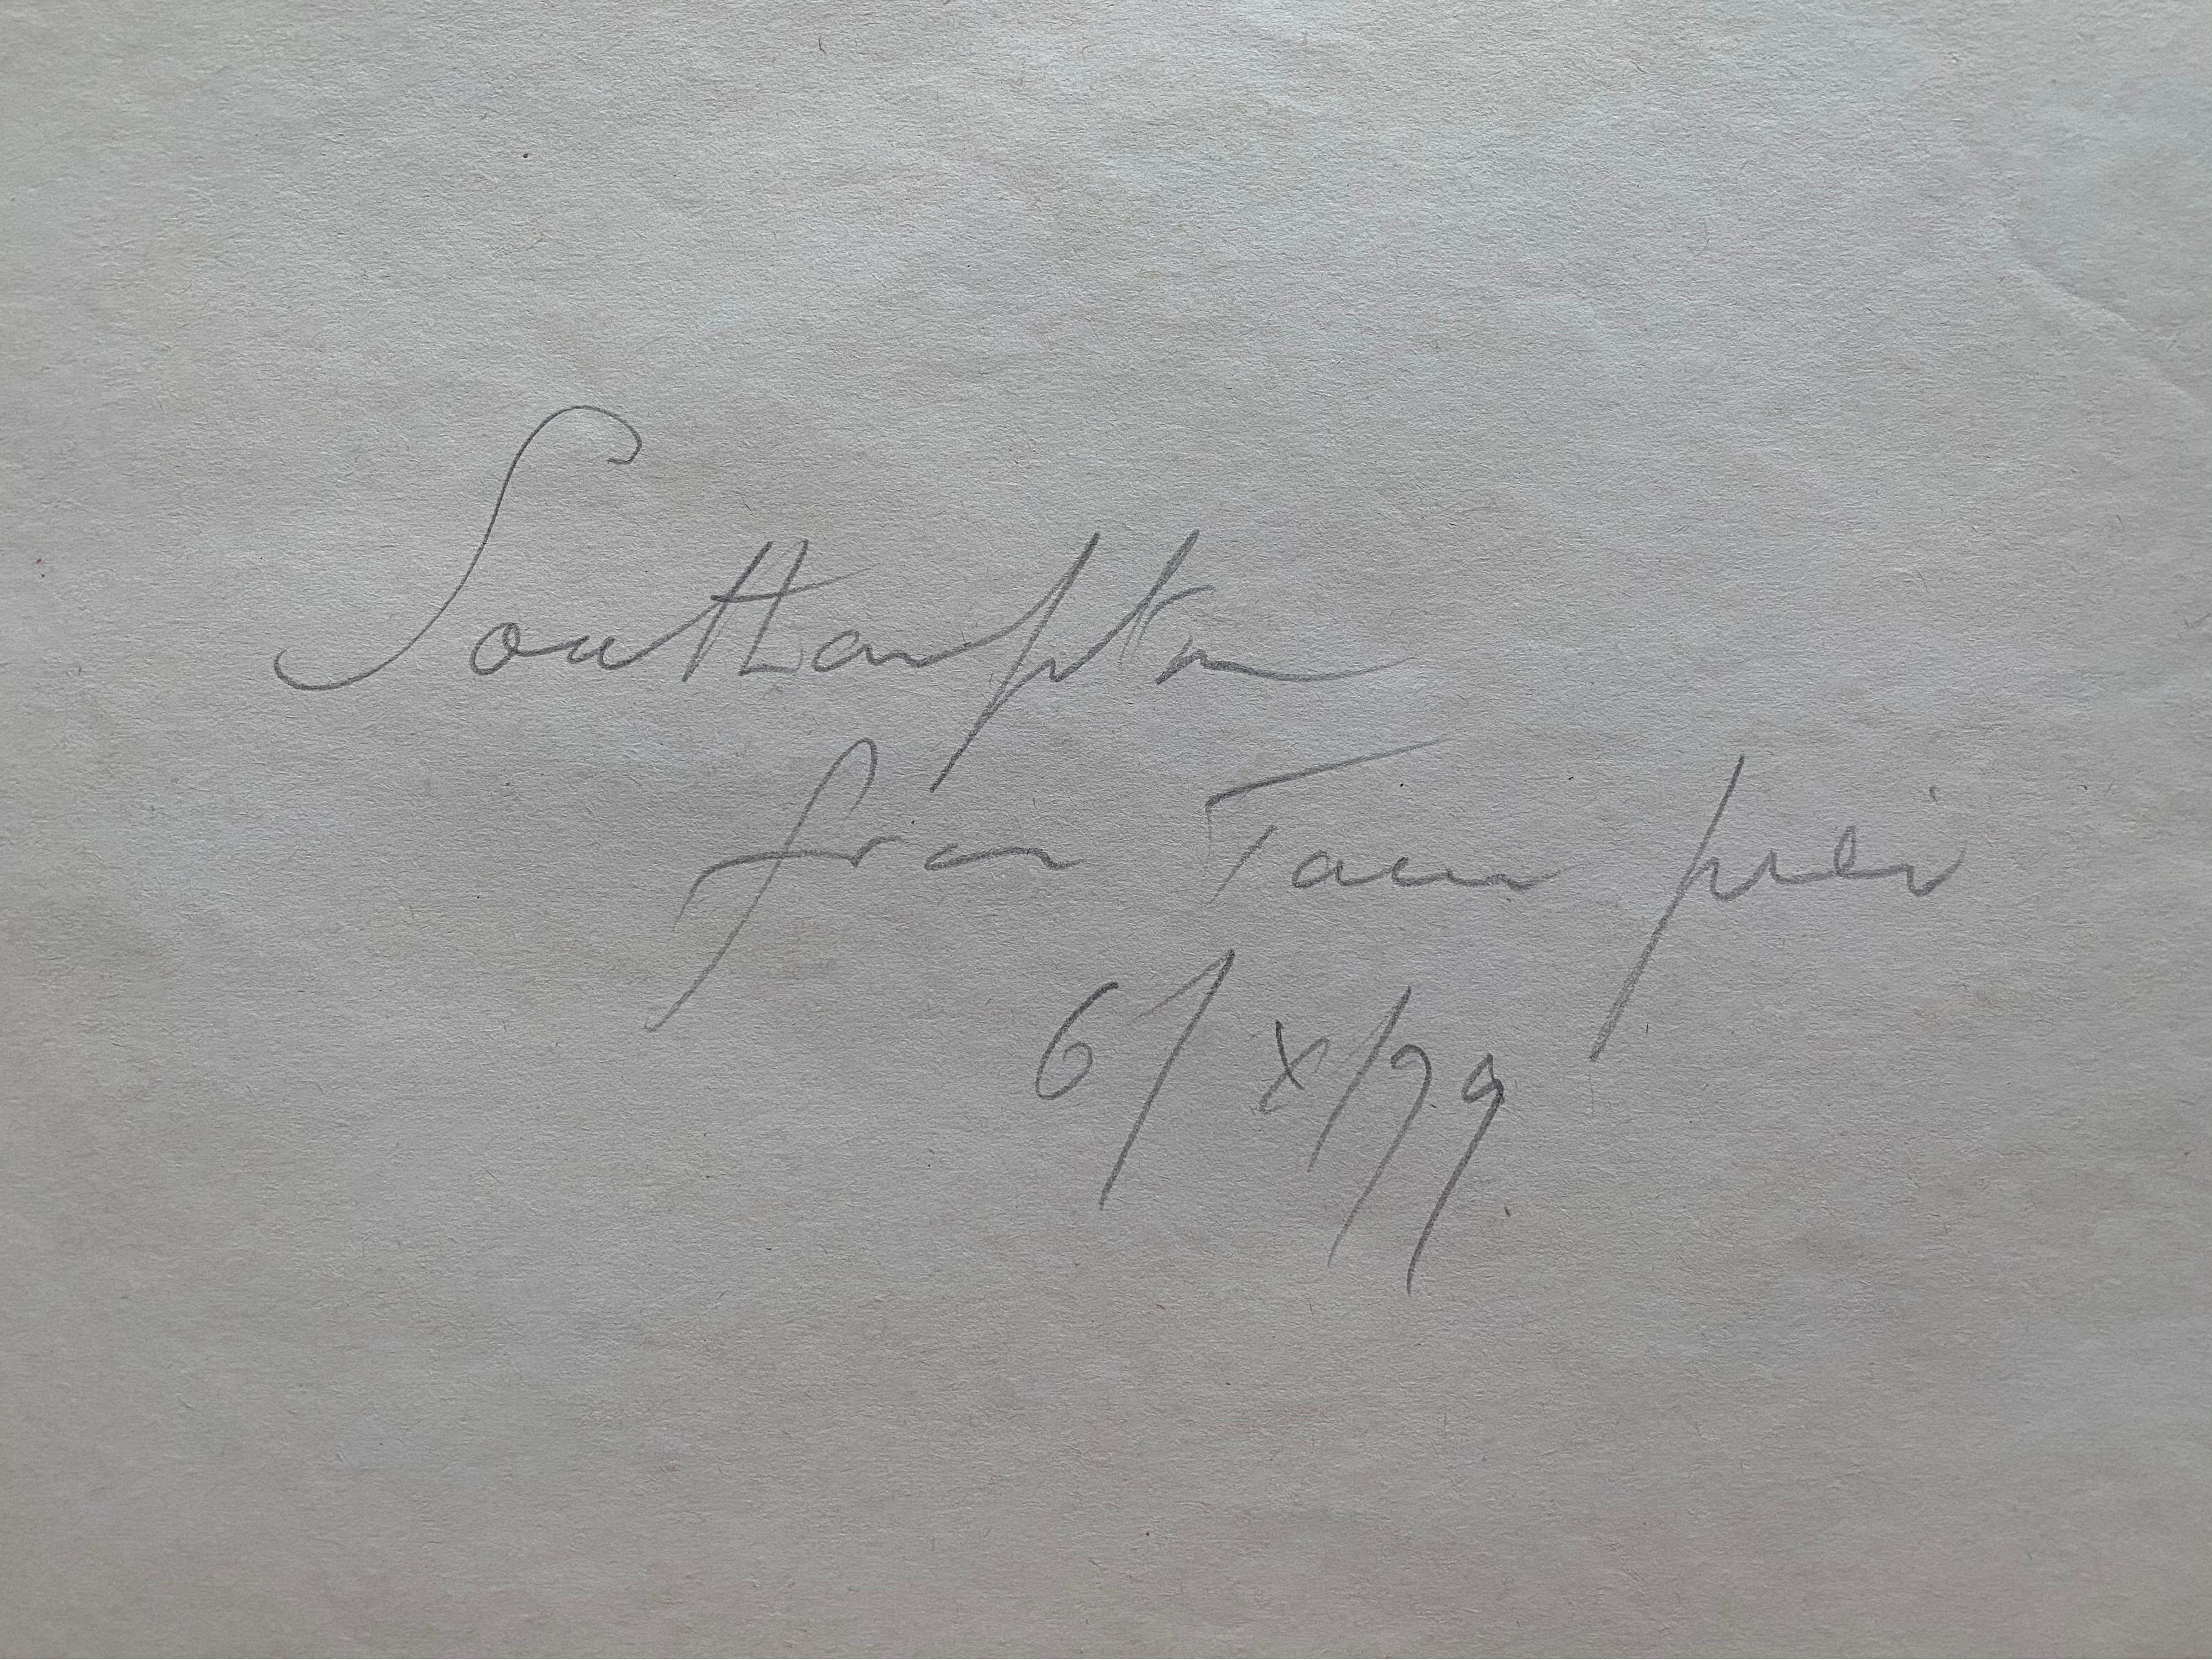 Southampton
from Town pier
6/x/79.